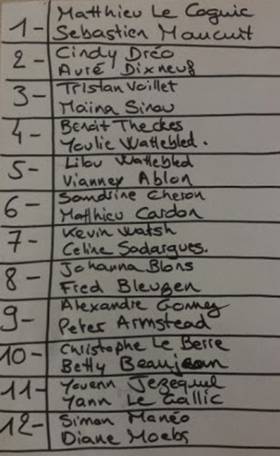 1- Matthieu Le Coguic
Sebastien Maucuit
2- Cindy Dréo
Auré Dixneuf
3- Tristan Voillet
Maïna Sinou
4- Benoit Theckes
Youlie Wattebled.
5- Lilou Wattebled
Vianney Ablon
6- Sandrine Cheron
Matthieu Cardon
7- Kevin Watsh
Celine Sadargues.
8- Johanna Blons
Fred Bleuzen
9- Alexandre
Peter Armstead
10- Christophe Le Berre
Betty Beaujean
11- Youenn Jezequel
Yann Le Gallic
12- Simon Manéo
Diane Moebs